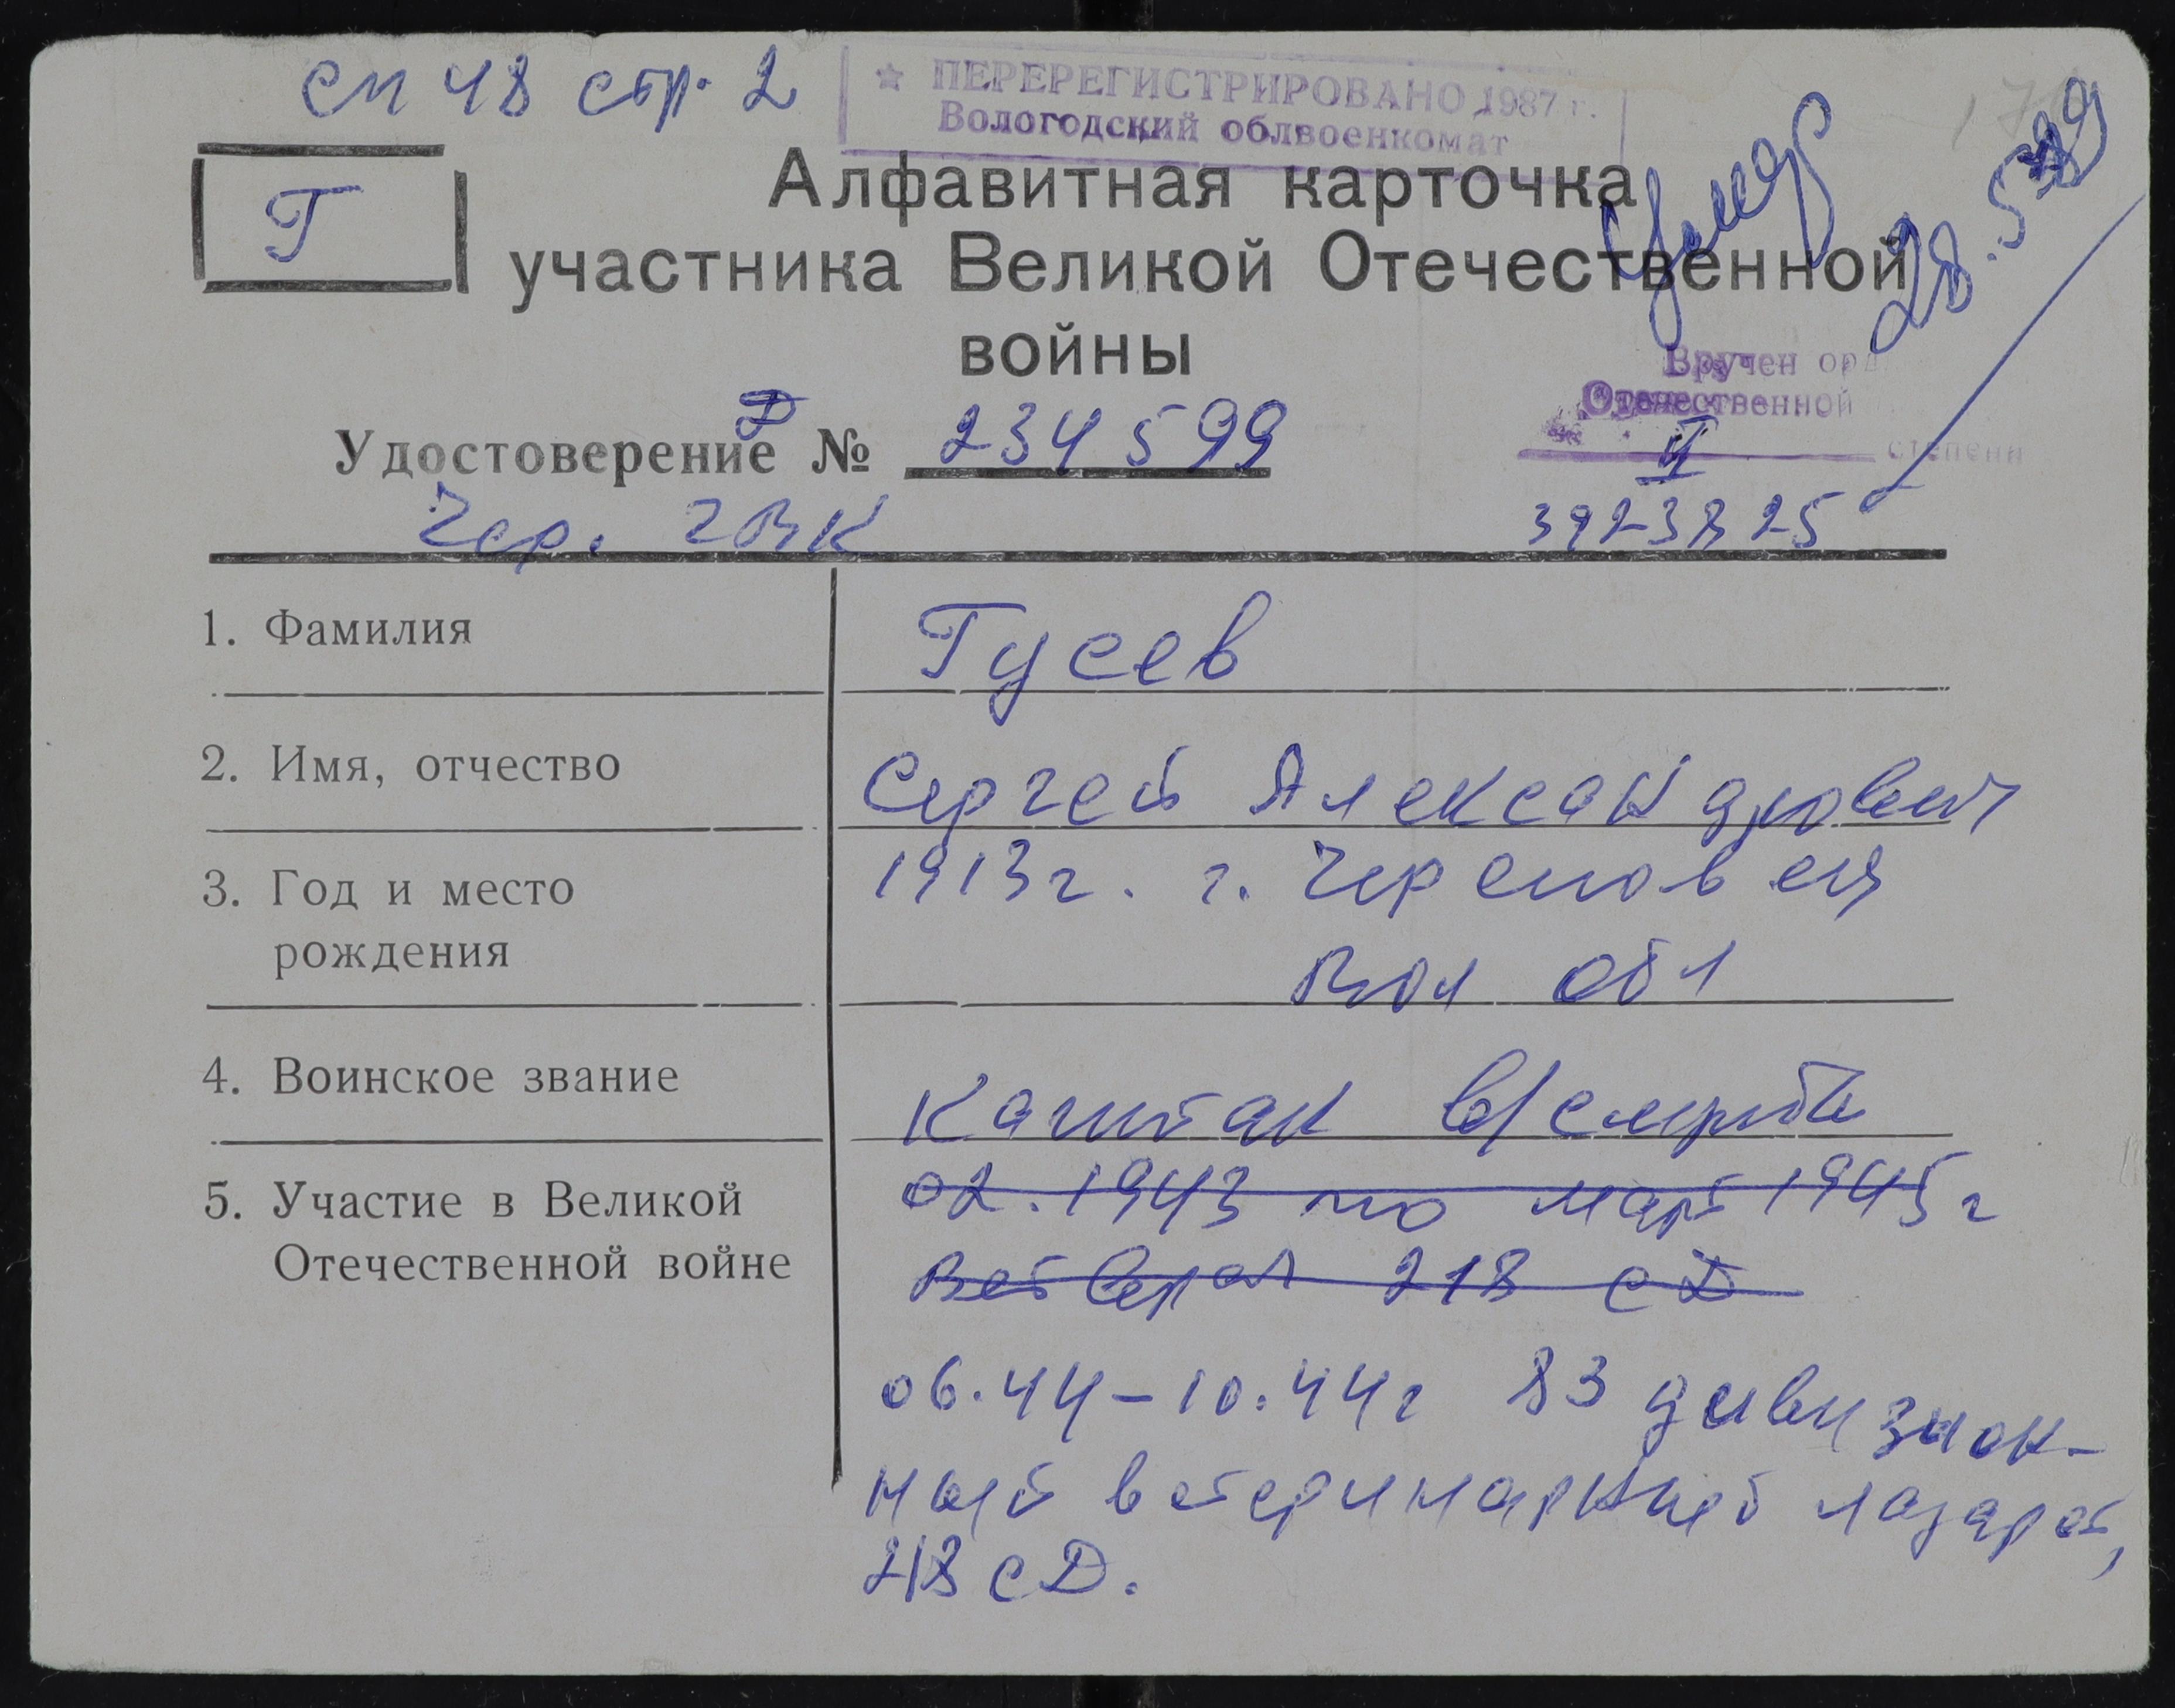 см 48 стр. 2
★ ПЕРЕРЕГИСТРИРОВАНО 1987 г.
Вологодский облвоенкомат
Г
Алфавитная карточка
участника Великой Отечественной
войны
умер
28.5.89
Вручен орд
Отечественной
II степени
3923825
Д
Удостоверение № 234599
Чер. ГВК
1. Фамилия
Гусев
2. Имя, отчество
Сергей Александрович
3. Год и место
рождения
1913г. г. Череповец
Вол обл
4. Воинское звание
Капитан в/службы
5. Участие в Великой
Отечественной войне
02.1943 по март 1945г
218 СД
06.44-10.44г 83 дивизион-
ный ветеринарный лазарет,
218 СД.